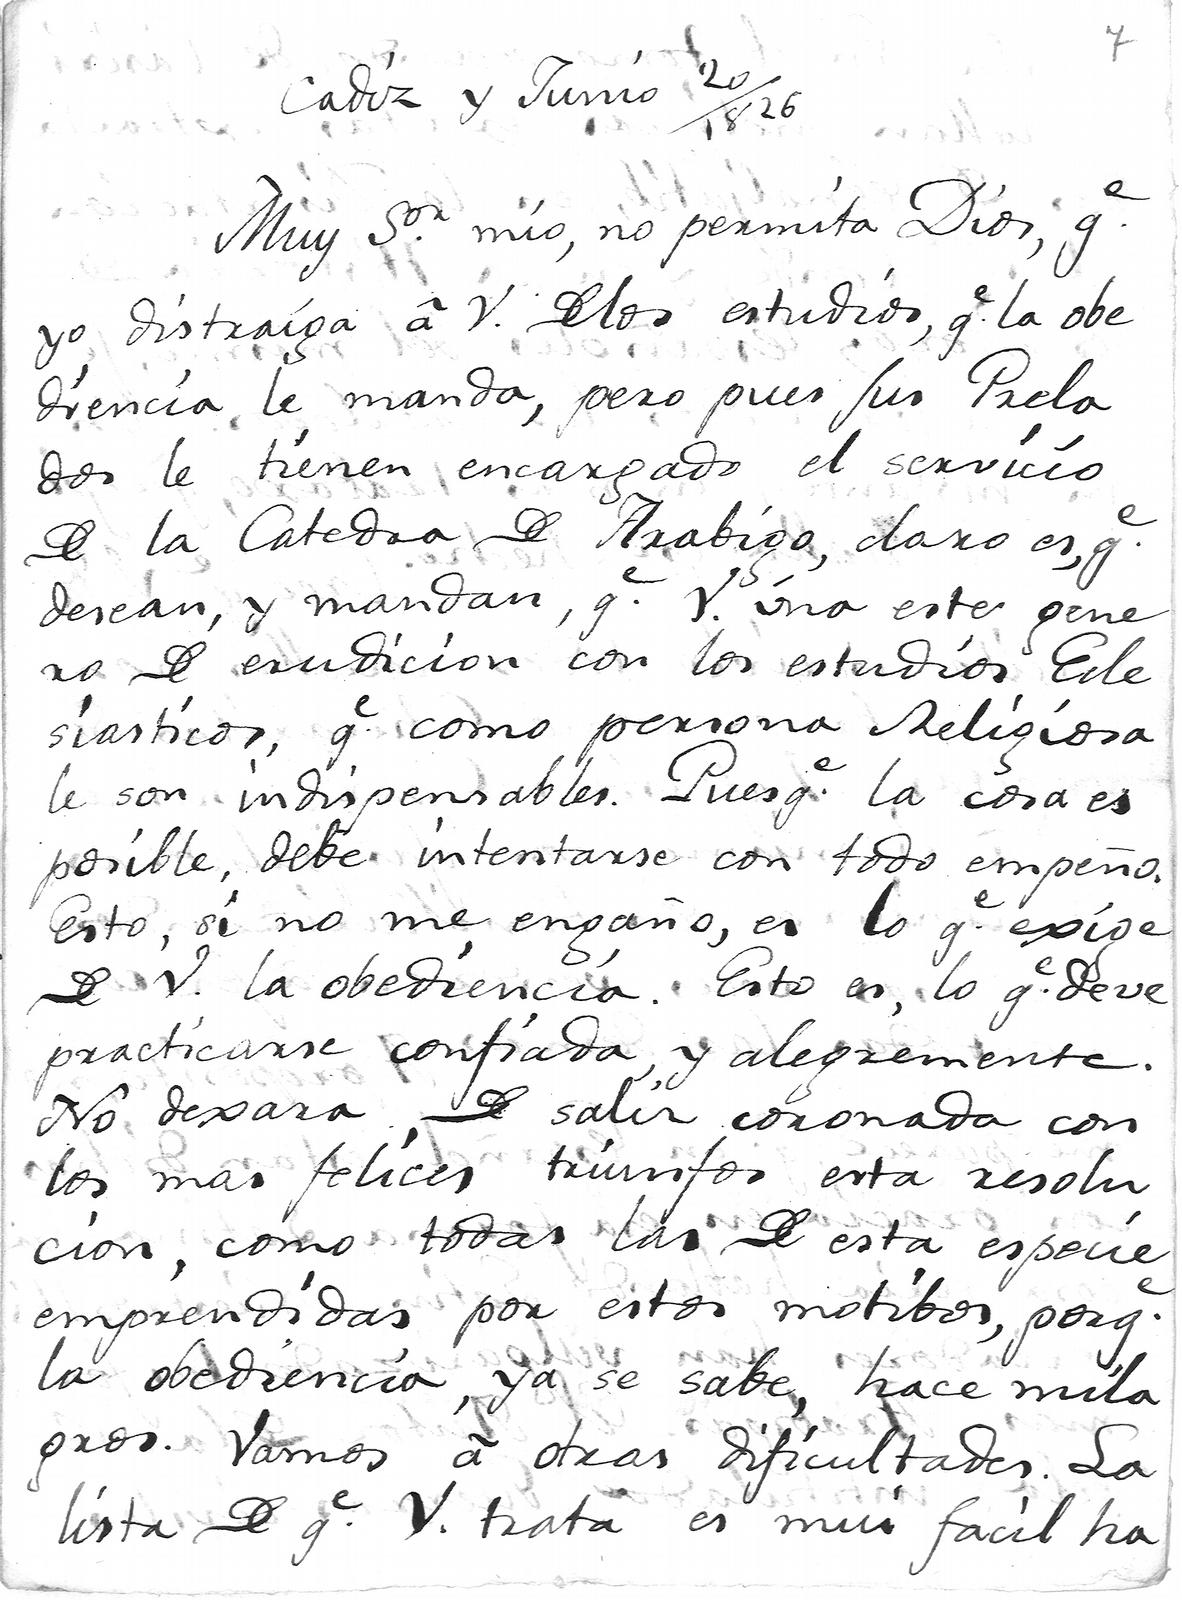 7
Cadiz y Junio 20/1826
Muy S.or mio, no permita Dios, q.e
yo distraiga â V. De los estudios, q.e la obe
diencia le manda, pero pues sus Prela
dos le tienen encargado el servicio
De la Catedra De Arabigo, claro es, q.e
desean, y mandan, q.e V. úna este gene
ro De erudicion con los estudios Ecle
siasticos, q.e como persona Religiosa
le son indispensables. Puesq.e la cosa es
posible, debe intentarse con todo empeño.
Esto, si no me engaño, es lo q.e exige
De V. la obediencia. Esto es, lo q.e deve
practicarse confiada, y alegremente.
No dexara, De salir coronada con
los mas felices triunfos esta resolu
cion, como todas las De esta especie
emprendidas por estos motibos, porq.e
la obediencia, ya se sabe, hace mila
gros. Vamos â otras dificultades. La
lista De q.e V. trata es mui facil ha